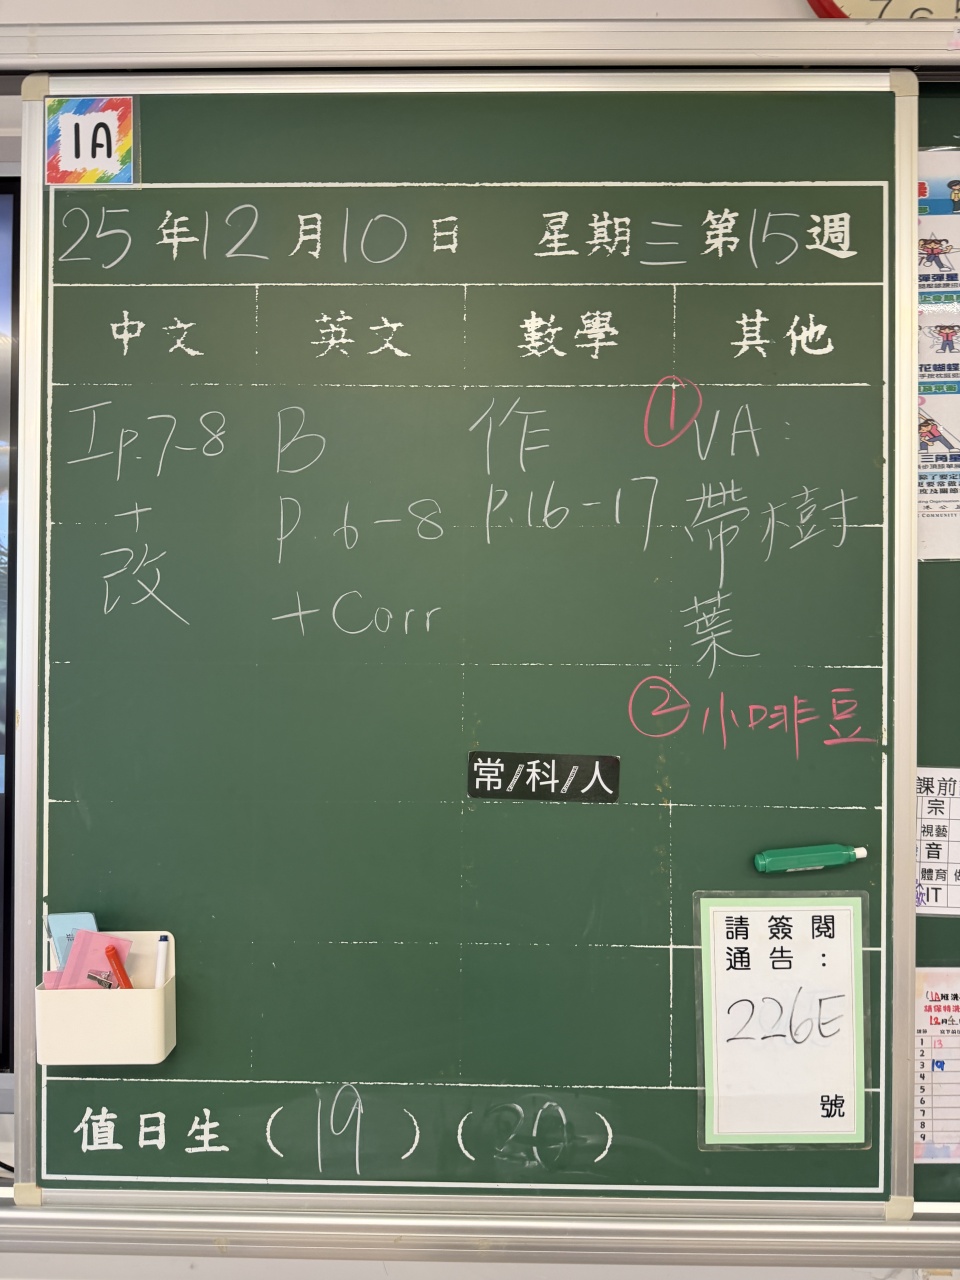 1A
25年12月10日 星期三第15週
中文 英文 數學 其他
工p.7-8
+
改
B
p.6-8
+Corr
作
p.16-17
①VA:
帶樹
葉
②小啡豆
常/科/人
請簽閱
通告:
226E
號
值日生(19)(20)
課前
宗
視藝
音
體育
IT
三角星
花蝴蝶
1
2
3
4
5
6
7
8
9
13
19